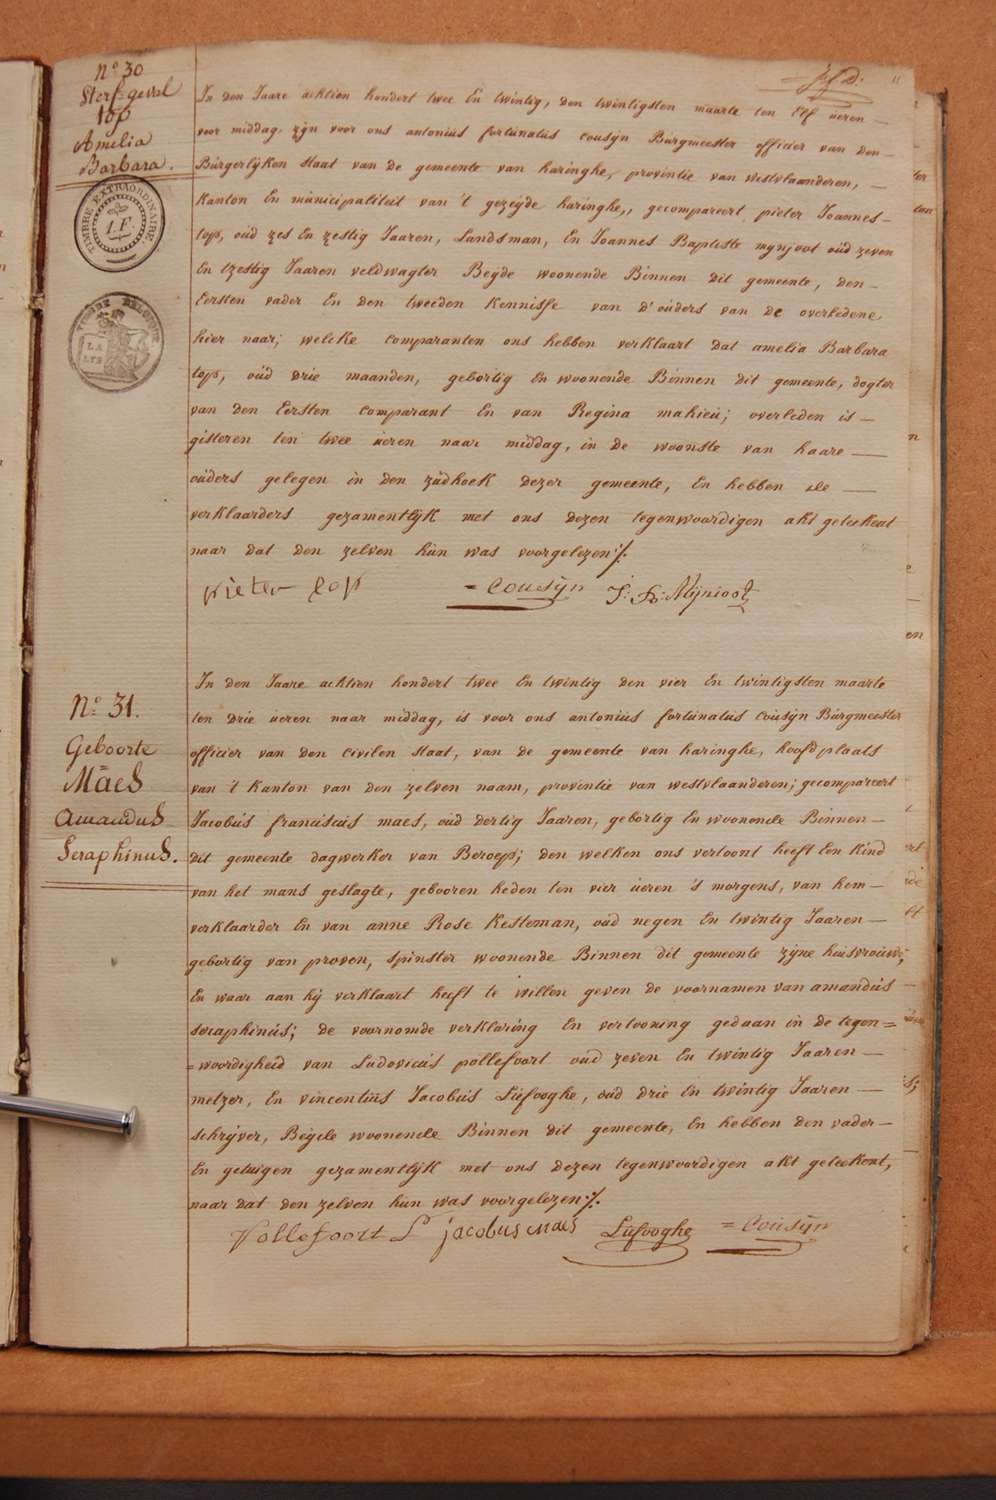 N° 30
Sterfgeval
Top
Amelia
Barbara.
TIMBRE EXTRAORDINAIRE
1.F
TIMBRE
LA
LYS
11
In den Jaare achtien hondert twee En twintig, den twintigsten maarte ten Elf ueren
voor middag zijn voor ons antonius fortunatus cousijn Bürgmeester officier van den
Bürgerlijken staat van de gemeente van haringhe, provintie van westvlaanderen,
Kanton En municipaliteit van 't gezeijde haringhe,, gecompareert pieter Joannes
top, oüd zes En zestig Jaaren, Landsman, En Joannes Baptiste mynjoot oüd zeven
En tzestig Jaaren veldwagter Beijde woonende Binnen dit gemeente, den
Eersten vader En den tweeden Kennisse van d'oüders van de overledene
hier naar; welcke comparanten ons hebben verklaart dat amelia Barbara
top, oüd drie maanden, gebortig En woonende Binnen dit gemeente, dogter
van den Eersten comparant En van Regina mahieü; overleden is
gisteren ten twee ueren naar middag, in de woonste van haare
oüders gelegen in den züdhoek dezer gemeente, En hebben de
verklaarders gezamentlijk met ons dezen tegenwoordigen akt geteekent
naar dat den zelven hün was voorgelezen ./.
pieter top = Cousijn J: B: Mijnioot
N° 31.
Geboorte
Mäes
Amandus
Seraphinus.
In den Jaare achtien hondert twee En twintig den vier En twintigsten maarte
ten drie üeren naar middag, is voor ons antoniüs fortünatüs coüsijn Bürgmeester
officier van den civilen staat, van de gemeente van haringhe, hoofdplaats
van 't Kanton van den zelven naam, provintie van westvlaanderen; gecompareert
Jacobüs franciscüs maes, oüd dertig Jaaren, gebortig En woonende Binnen
dit gemeente dagwerker van Beroep; den welken ons vertoont heeft Een kind
van het mans geslagte, gebooren heden ten vier üeren 's morgens, van hem
verklaarder En van anne Rose Kesteman, oud negen En twintig Jaaren
gebortig van proven, spinster woonende Binnen dit gemeente zijne huisvrouwe,
En waar aan hij verklaart heeft te willen geven de voornamen van amandüs
seraphinüs; de voornomde verklaring En vertooning gedaan in de tegen=
=woordigheid van Ludovicüs pollefoort oüd zeven En twintig Jaaren
metzer, En vincentiüs Jacobüs Liefooghe, oud drie En twintig Jaaren
schrijver, Beijde woonende Binnen dit gemeente, En hebben den vader
En getuigen gezamentlijk met ons dezen tegenwoordigen akt geteekent,
naar dat den zelven hün was voorgelezen ./.
Pollefoort L jacobus maes Liefooghe = Coüsijn